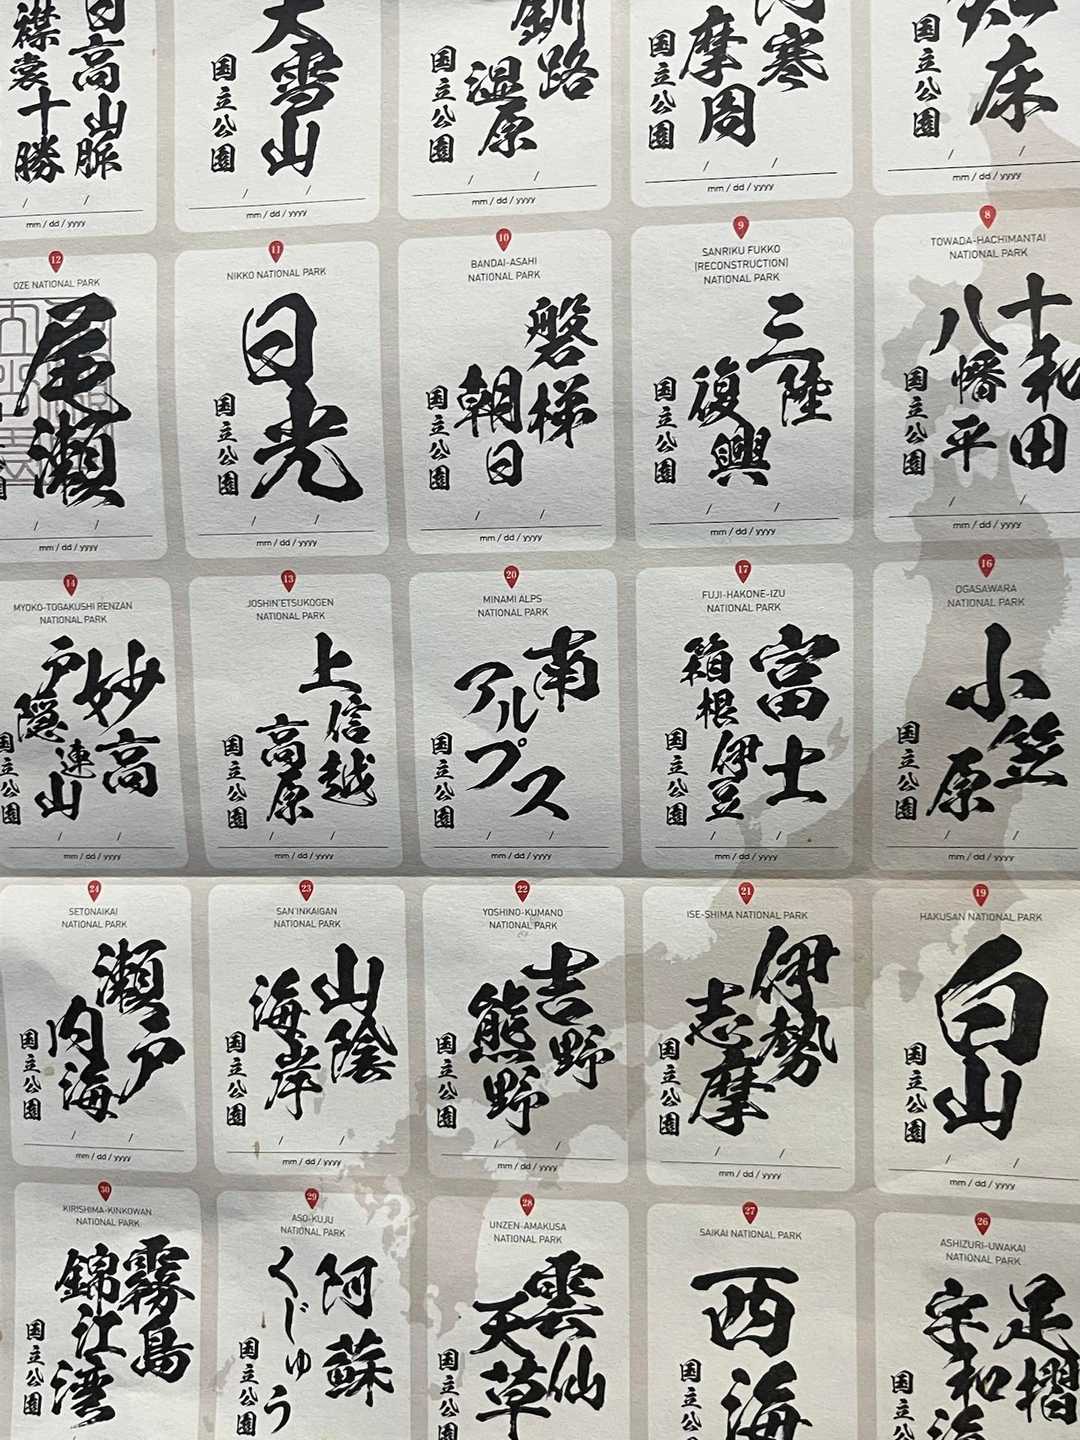 日高山脈
襟裳十勝
/ /
mm / dd / yyyy
大雪山
国立公園
/ /
mm / dd / yyyy
釧路
湿原
国立公園
/ /
mm / dd / yyyy
寒
摩周
国立公園
/ /
mm / dd / yyyy
知床
国立公園
/ /
mm / dd / yyyy
12
OZE NATIONAL PARK
尾瀬
/ /
mm / dd / yyyy
11
NIKKO NATIONAL PARK
日光
国立公園
/ /
mm / dd / yyyy
10
BANDAI-ASAHI
NATIONAL PARK
磐梯
朝日
国立公園
/ /
mm / dd / yyyy
9
SANRIKU FUKKO
(RECONSTRUCTION)
NATIONAL PARK
三陸
復興
国立公園
/ /
mm / dd / yyyy
8
TOWADA-HACHIMANTAI
NATIONAL PARK
十和田
八幡平
国立公園
/ /
mm / dd / yyyy
14
MYOKO-TOGAKUSHI RENZAN
NATIONAL PARK
妙高
戸隠
連山
国立公園
/ /
mm / dd / yyyy
13
JOSHIN'ETSUKOGEN
NATIONAL PARK
上信越
高原
国立公園
/ /
mm / dd / yyyy
20
MINAMI ALPS
NATIONAL PARK
南
アルプス
国立公園
/ /
mm / dd / yyyy
17
FUJI-HAKONE-IZU
NATIONAL PARK
富士
箱根
伊豆
国立公園
/ /
mm / dd / yyyy
16
OGASAWARA
NATIONAL PARK
小笠原
国立公園
/ /
mm / dd / yyyy
24
SETONAIKAI
NATIONAL PARK
瀬戸
内海
国立公園
/ /
mm / dd / yyyy
23
SAN'INKAIGAN
NATIONAL PARK
山陰
海岸
国立公園
/ /
mm / dd / yyyy
22
YOSHINO-KUMANO
NATIONAL PARK
吉野
熊野
国立公園
/ /
mm / dd / yyyy
21
ISE-SHIMA NATIONAL PARK
伊勢
志摩
国立公園
/ /
mm / dd / yyyy
19
HAKUSAN NATIONAL PARK
白山
国立公園
/ /
mm / dd / yyyy
30
KIRISHIMA-KINKOWAN
NATIONAL PARK
霧島
錦江湾
国立公園
29
ASO-KUJU
NATIONAL PARK
阿蘇
くじゅう
国立公園
28
UNZEN-AMAKUSA
NATIONAL PARK
雲仙
天草
国立公園
27
SAIKAI NATIONAL PARK
西海
国立公
26
ASHIZURI-UWAKAI
NATIONAL PARK
足摺
宇和海
国立公